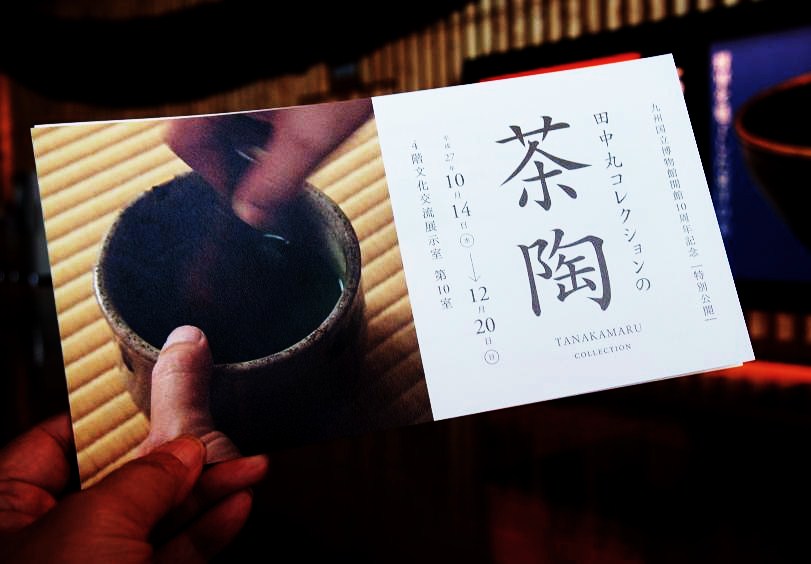 九州国立博物館開館10周年記念 [特別公開]
田中丸コレクションの
茶陶
TANAKAMARU
COLLECTION
平成27年10月14日(水)→12月20日(日)
4階文化交流展示室 第10室